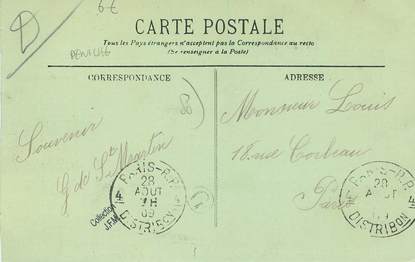 6€
D
CARTE POSTALE
Tous les Pays étrangers n'acceptent pas la Correspondance au recto
(Se renseigner à la Poste)
CORRESPONDANCE
ADRESSE
88
Souvenir
G de St Martin
Monsieur Louis
18 rue Corbeau
Paris
PARIS-R.P.
4
28
AOUT
H
09
DISTRIBON
Collection
J.F.M.
PARIS-R.P.
4
28
AOUT
09
DISTRIBON